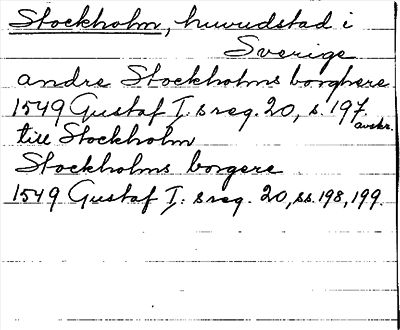 Stockholm, huvudstad i
Sverige
andre Stockholms borghere
1549 Gustaf I:s reg. 20, s. 197.
avskr.
till Stockholm
Stockholms borgere
1549 Gustaf I:s reg. 20, ss. 198, 199.